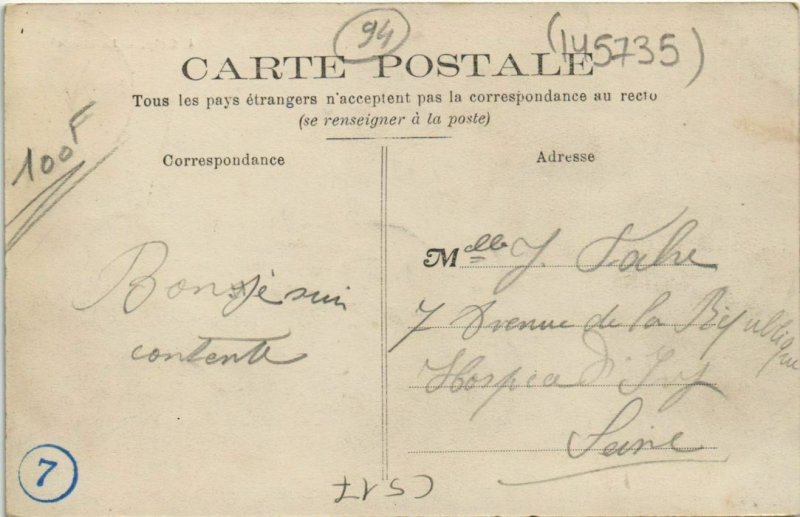 94
(145735)
CARTE POSTALE
Tous les pays étrangers n'acceptent pas la correspondance au recto
(se renseigner à la poste)
100F
Correspondance
Adresse
Bon je suis
contente
Melle J. Fabre
7 Avenue de la République
Hospice d'Ivry
Seine
7
CS17